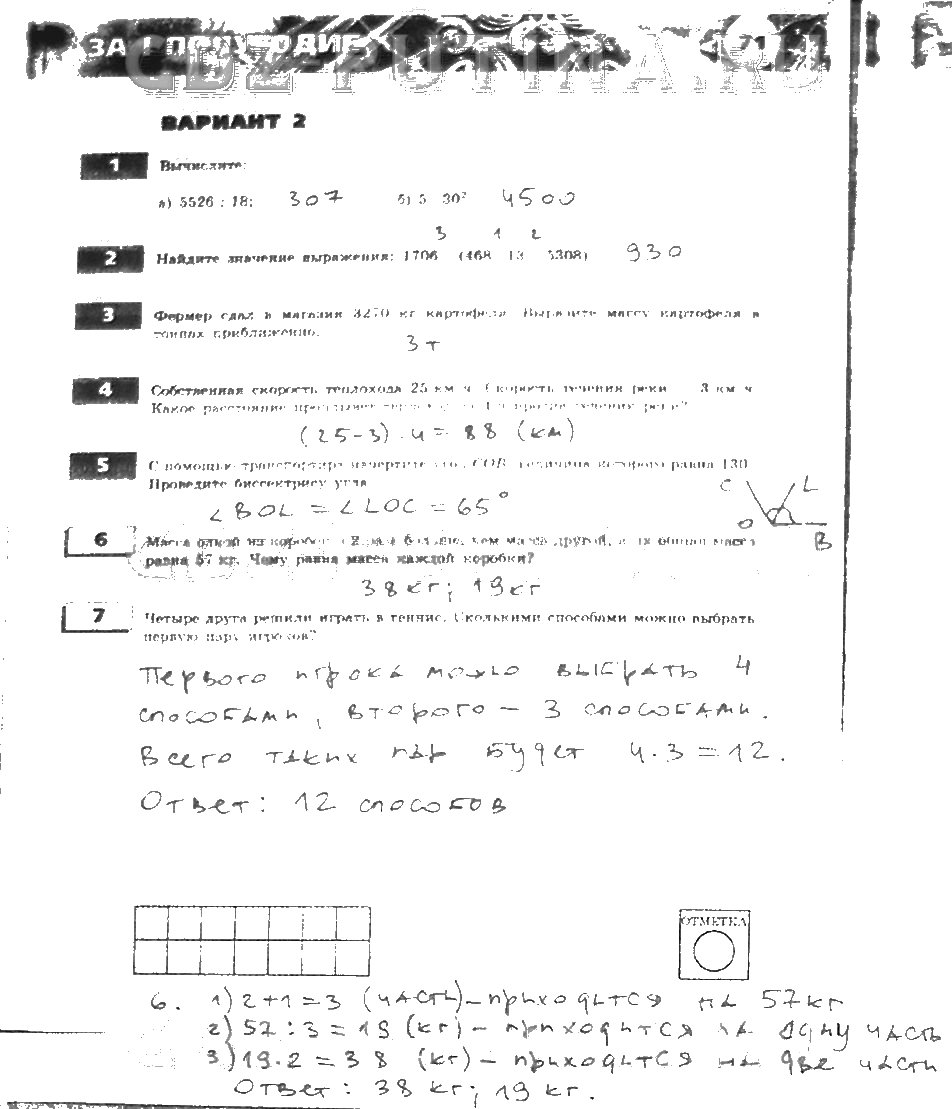 ЗА I ПОЛУГОДИЕ
ВАРИАНТ 2
1 Вычислите:
а) 5526 : 18; 307 б) 5 30² 4500
3 1 2
2 Найдите значение выражения: 1706 (468 13 5308) 930
3 Фермер сдал в магазин 3270 кг картофеля. Выразите массу картофеля в
тоннах приближенно.
3 т
4 Собственная скорость теплохода 25 км ч. Скорость течения реки 3 км ч
Какое расстояние против течения реки?
(25-3) · 4 = 88 (км)
5 С помощью транспортира начертите угол COB, величина которого равна 130
Проведите биссектрису угла
C L
∠BOL = ∠LOC = 65°
O B
6 Масса одной из коробок в 2 раза больше, чем масса другой, а их общая масса
равна 57 кг. Чему равна масса каждой коробки?
38 кг; 19 кг
7 Четыре друга решили играть в теннис. Сколькими способами можно выбрать
первую пару игроков?
Первого игрока можно выбрать 4
способами, второго - 3 способами.
Всего таких пар будет 4·3=12.
Ответ: 12 способов
ОТМЕТКА
6. 1) 2+1=3 (часть) - приходится на 57кг
2) 57:3=19 (кг) - приходится на одну часть
3) 19·2=38 (кг) - приходится на две части
Ответ: 38 кг; 19 кг.